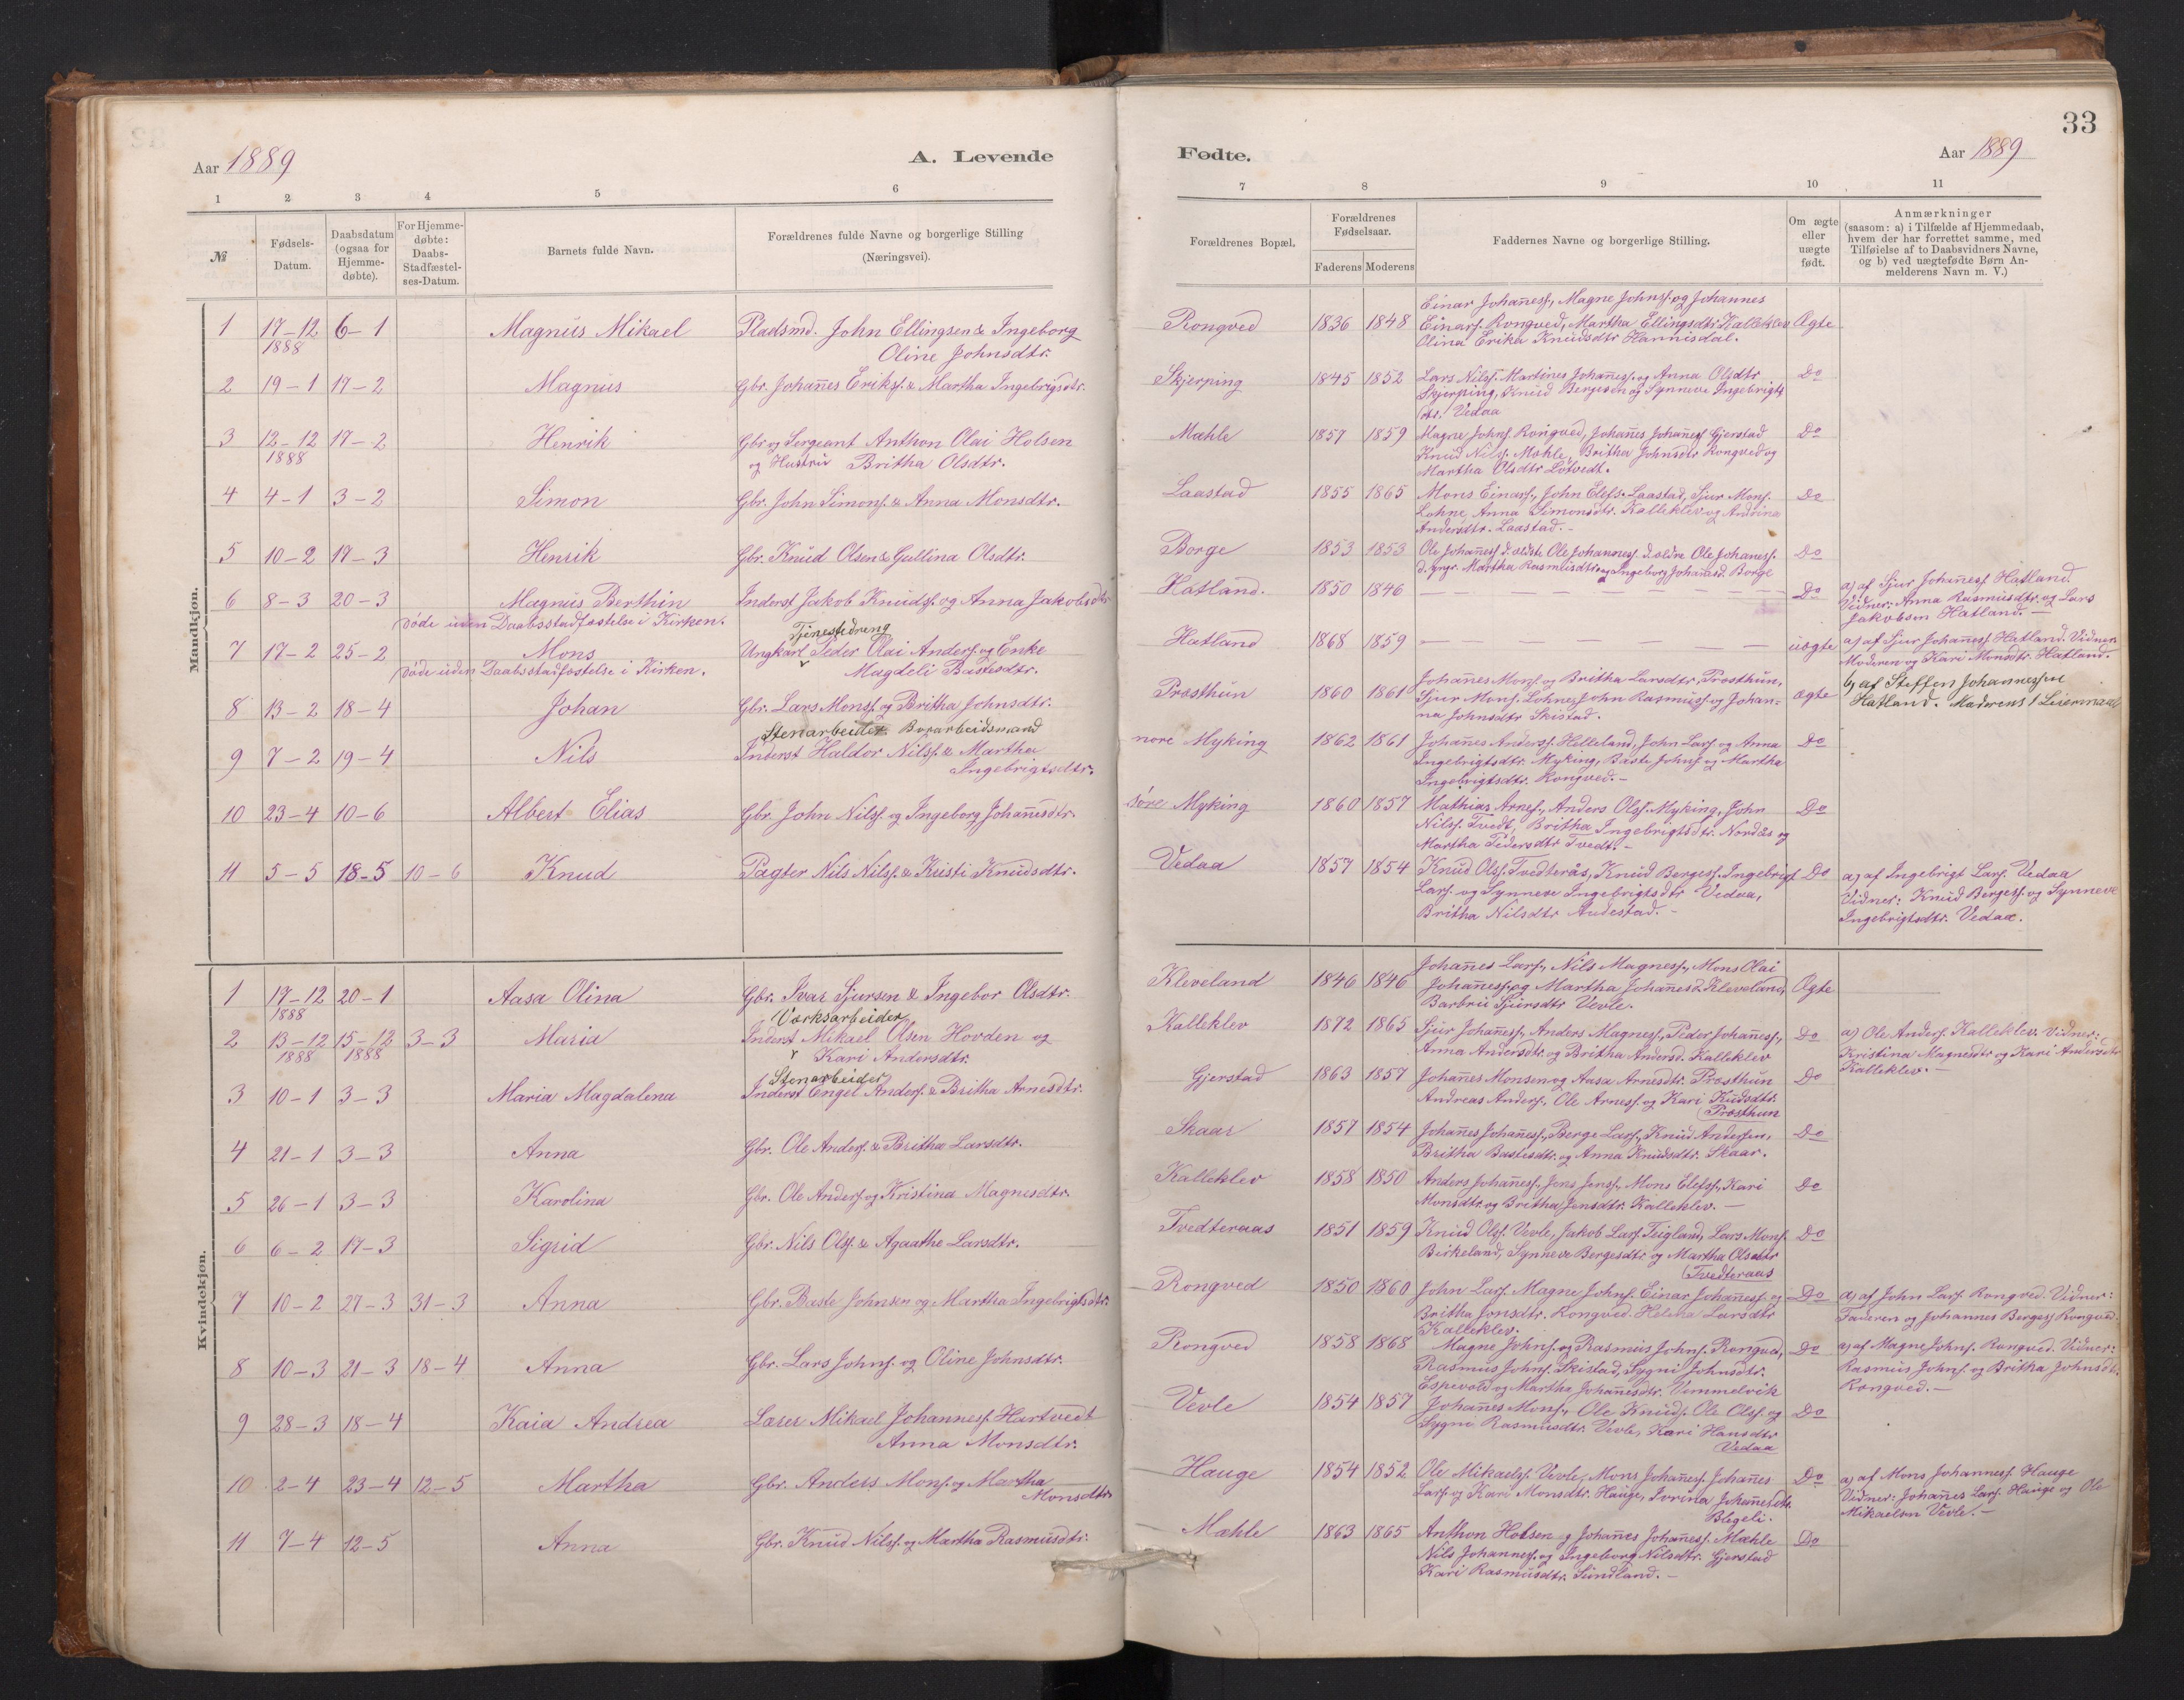 33
Aar 1889
A. Levende
Fødte.
Aar 1889
1 2 3 4 5 6 7 8 9 10 11
№
Fødsels-Datum.
Daabsdatum (ogsaa for Hjemme-døbte).
For Hjemme-døbte: Daabs-Stadfæstel-ses-Datum.
Barnets fulde Navn.
Forældrenes fulde Navne og borgerlige Stilling (Næringsvei).
Forældrenes Bopæl.
Forældrenes Fødselsaar.
Faderens Moderens
Faddernes Navne og borgerlige Stilling.
Om ægte eller uægte født.
Anmærkninger (saasom: a) i Tilfælde af Hjemmedaab, hvem der har forrettet samme, med Tilføielse af to Daabsvidners Navne, og b) ved uægtefødte Børn An-melderens Navn m. V.)
Mandkjøn.
1 17-12 1888 6-1 Magnus Mikael Pladsmd. John Ellingsen & Ingeborg
Oline Johnsdtr.
Rongved 1836 1848 Einar Johanes., Magne Johns. og Johannes
Einars. Rongved, Martha Ellingsdtr. Kalleklev Ægte
Olina Erika Knudsdtr Hannisdal.
2 19-1 17-2 Magnus Gbr. Johanes Eriks. & Martha Ingebrigsdtr.
Skjerping 1845 1852 Lars Nils. Martines Johanes. og Anna Olsdtr Do
Skjerping, Knud Bergeson og Synneve Ingebrigts
dtr. Vedaa
3 12-12 1888 17-2 Henrik Gbr og Sergeant Anthon Olai Holsen
og Hustru Britha Olsdtr.
Mæhle 1857 1859 Magne Johns. Rongved, Johanes Johanes. Gjerstad Do
Knud Nils. Mæhle, Britha Johnsdtr Rongved og
Martha Olsdtr Lötvedt.
4 4-1 3-2 Simon Gbr. John Simons. & Anna Monsdtr.
Laastad 1855 1865 Mons Einars., John Elefs. Laastad, Sjur Mons. Do
Lohne, Anna Simonsdtr. Kalleklev og Andrina
Andersdtr. Laastad.-
5 10-2 17-3 Henrik Gbr. Knud Olsen & Gullina Olsdtr.
Borge 1853 1853 Ole Johanes. d. ældste, Ole Johannes. d. ældre Ole Johanes. Do
d. yngr. Martha Rasmusdtr. og Ingeborg Johanesd. Borge
6 8-3 20-3 Magnus Berthin Inderst Jakob Knuds. og Anna Jakobsdtr
døde uden Daabsstadfæstelse i Kirken.
Hatland. 1850 1846 Do a) af Sjur Johanes. Hatland.
Vidner: Anna Rasmusdtr. og Lars
Jakobson Hatland.
7 17-2 25-2 Mons Tjenestedreng
Ungkarl Peder Olai Anders. og Enke
Magdeli Bastesdtr.
døde uden Daabsstadfæstelse i Kirken.
Hatland 1868 1859 uægte a) af Sjur Johanes. Hatland. Vidner:
Moderen og Kari Monsdtr. Hatland.
b) af Steffen Johannessen
Hatland. Moderens 1 Leiermaal
8 13-2 18-4 Johan Gbr. Lars Mons. og Britha Johnsdtr.
Præsthun 1860 1861 Johanes Mons. og Britha Larsdtr, Præsthun,
Sjur Mons. Lohne, John Rasmus. og Johan- ægte
na Johnsdtr Skistad.
9 7-2 19-4 Nils Stenarbeider Borarbeidsmand
Inderst Haldor Nils. & Martha
Ingebrigtsdtr.
nore Myking 1862 1861 Johanes Anders. Helleland, John Lars. og Anna Do
Ingebrigtsdtr. Myking, Baste Johns. og Martha
Ingebrigtsdtr. Rongved.-
10 23-4 10-6 Albert Elias Gbr. John Nils. og Ingeborg Johanesdtr.
søre Myking 1860 1857 Mathias Arnes., Anders Ols. Myking, John Do
Nils. Tvedt, Britha Ingebrigtsdtr. Nordås og
Martha Pedersdtr Tvedt.-
11 5-5 18-5 10-6 Knud Pagter Nils Nils. & Kristi Knudsdtr.
Vedaa 1857 1854 Knud Ols. Tvedterås, Knud Berges. Ingebrigt Do
Lars. og Synneve Ingebrigtsdtr Vedaa,
Britha Nilsdtr Andestad.-
a) af Ingebrigt Lars. Vedaa
Vidner: Knud Berges. og Synneve
Ingebrigtsdtr. Vedaa.
Kvindekjøn.
1 17-12 1888 20-1 Aasa Olina Gbr. Ivar Sjursen & Ingebor Olsdtr.
Kleveland 1846 1846 Johanes Lars., Nils Magnes., Mons Olai
Johanes. og Martha Johanesd. Kleveland, Ægte
Barbru Sjursdtr Vevle.
2 13-12 1888 15-12 1888 3-3 Maria Værksarbeider
Inderst Mikael Olsen Hovden og
Kari Andersdtr.
Kalleklev 1872 1865 Sjur Johanes., Anders Magnes., Peder Johanes., Do
Anna Andersdtr. og Britha Andersd. Kalleklev
a) Ole Anders. Kalleklev. Vidner:
Kristina Magnesdtr og Kari Andersdtr
Kalleklev.-
3 10-1 3-3 Maria Magdalena Stenarbeider
Inderst Engel Anders. & Britha Arnesdtr.
Gjerstad 1863 1857 Johanes Monsen og Aasa Arnesdtr. Præsthun Do
Andreas Anders., Ole Arnes. og Kari Kudsdtr.
Præsthun
4 21-1 3-3 Anna Gbr. Ole Anders. & Britha Larsdtr.
Skaar 1857 1854 Johanes Johanes., Berge Lars., Knud Andersen, Do
Britha Bastesdtr. og Anna Knudsdtr. Skaar.
5 26-1 3-3 Karolina Gbr. Ole Anders. og Kristina Magnesdtr.
Kalleklev 1858 1850 Anders Johanes., Jens Jens., Mons Elefs., Kari Do
Monsdtr. og Britha Jensdtr. Kalleklev.-
6 6-2 17-3 Sigrid Gbr. Nils Ols. & Agaathe Larsdtr.
Tvedteraas 1851 1859 Knud Ols. Vevle, Jakob Lars. Teigland, Lars Mons. Do
Birkeland, Synneve Bergesdtr og Martha Olsdtr
Tvedteraas
7 10-2 27-3 31-3 Anna Gbr. Baste Johnsen og Martha Ingebrigtsdtr.
Rongved 1850 1860 John Lars. Magne Johns. Einar Johanes. og Do
Britha Jonsdtr. Rongved. Helena Larsdtr
Kalleklev.
a) af John Lars. Rongved. Vidner:
Faderen og Johannes Berges. Rongved.
8 10-3 21-3 18-4 Anna Gbr. Lars Johns. og Oline Johnsdtr.
Rongved 1858 1868 Magne Johns. og Rasmus Johns. Rongved, Do
Rasmus Johns. Skistad, Sygni Johnsdtr.
Espevold og Martha Johanesdtr. Vemmelvik
a) af Magne Johns. Rongved. Vidner:
Rasmus Johns. og Britha Johnsdt.
Rongved.-
9 28-3 18-4 Kaia Andrea Lærer Mikael Johannes. Hartvedt
Anna Monsdtr.
Vevle 1854 1857 Johanes Mons., Ole Knuds. Ole Ols. og Do
Sygni Rasmusdtr. Vevle, Kari Hansdtr
Vedaa
10 2-4 23-4 12-5 Martha Gbr. Anders Mons. og Martha
Monsdtr.
Hauge 1854 1852 Ole Mikaels. Vevle, Mons Johanes. Johanes Do
Lars. og Kari Monsdtr. Hauge, Jorina Johanesdtr.
Blegeli.
a) af Mons Johannes. Hauge
Vidner: Johanes Lars. Hauge og Ole
Mikaelsen Vevle.-
11 7-4 12-5 Anna Gbr. Knud Nils. og Martha Rasmusdtr.
Mæhle 1863 1865 Anthon Holsen og Johanes Johanes. Mæhle Do
Nils Johannes. og Ingeborg Nilsdtr. Gjerstad
Kari Rasmusdtr. Sundland.-